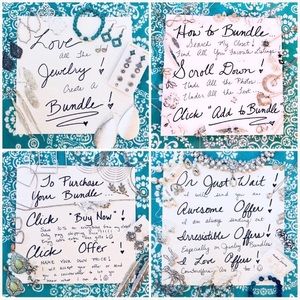 Love
All The
Jewelry!
Create A
Bundle!
How to Bundle
Search My Closet!
Find All Your Favorite Listings
Scroll Down!
Under All the Photos
Under All the Text
Click "Add to Bundle"
To Purchase
Your Bundle
Click "Buy Now"!
Click Offer!
Make Your Own Price!
Or Just Wait!
I will send you
Awesome Offer!
I am always sending out
Irresistible Offers!
Especially on Quality Bundles
I Love Offers!